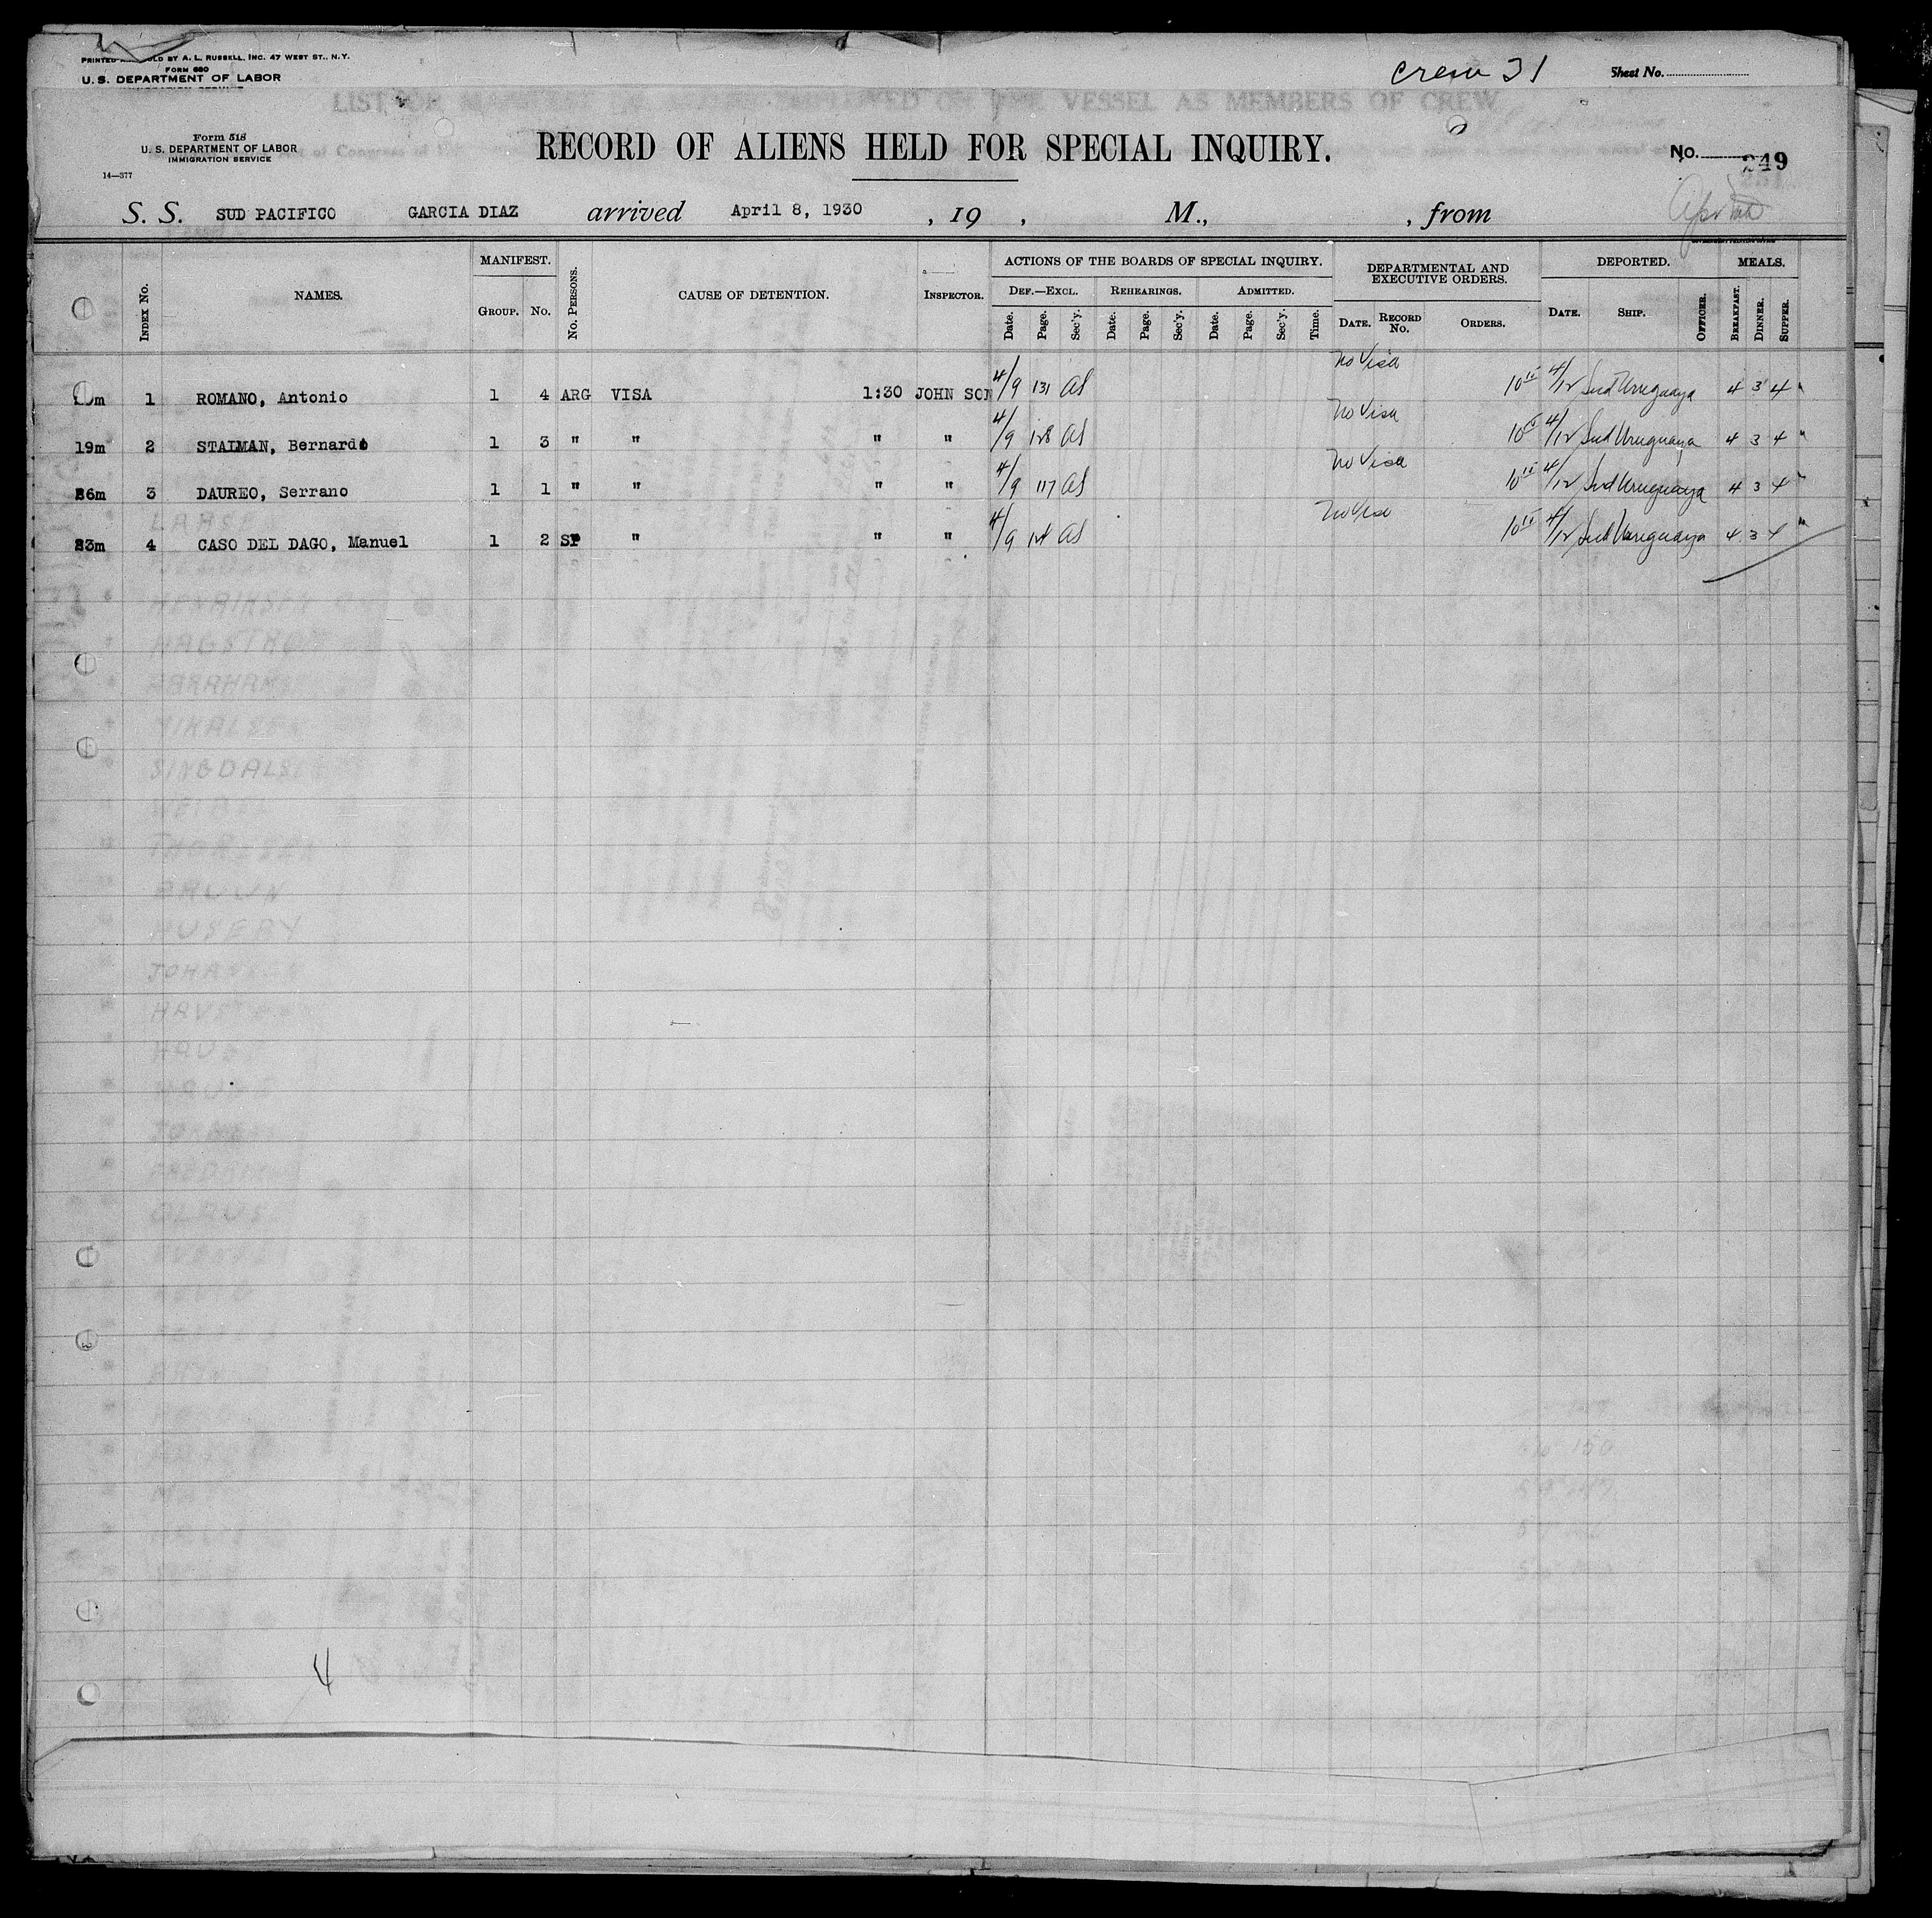 FORM 680
U. S. DEPARTMENT OF LABOR
crew 31 Sheet No.
LIST OR MANIFEST OF ALIENS EMPLOYED ON THE VESSEL AS MEMBERS OF CREW
Form 518
U. S. DEPARTMENT OF LABOR
IMMIGRATION SERVICE
14—377
RECORD OF ALIENS HELD FOR SPECIAL INQUIRY.
No. 249
S. S. SUD PACIFICO GARCIA DIAZ arrived April 8, 1930 , 19 , M., , from
INDEX No. NAMES. MANIFEST. GROUP. No. No. PERSONS. CAUSE OF DETENTION. INSPECTOR. ACTIONS OF THE BOARDS OF SPECIAL INQUIRY. DEF.—EXCL. Date. Page. Sec'y. REHEARINGS. Date. Page. Sec'y. ADMITTED. Date. Page. Sec'y. Time. DEPARTMENTAL AND EXECUTIVE ORDERS. DATE. RECORD No. ORDERS. DEPORTED. DATE. SHIP. OFFICER. MEALS. BREAKFAST. DINNER. SUPPER.
1 ROMANO, Antonio 1 4 ARG VISA 1:30 JOHN SON 4/9 131 AS no Visa 4/12 Sud Uruguaya 4 3 4 "
19m 2 STAIMAN, Bernardo 1 3 " " " " 4/9 128 AS no Visa 4/12 Sud Uruguaya 4 3 4 "
26m 3 DAUREO, Serrano 1 1 " " " " 4/9 117 AS no Visa 4/12 Sud Uruguaya 4 3 4 "
23m 4 CASO DEL DAGO, Manuel 1 2 SP " " " 4/9 AS no Visa 4/12 Sud Uruguaya 4 3 4 "
4